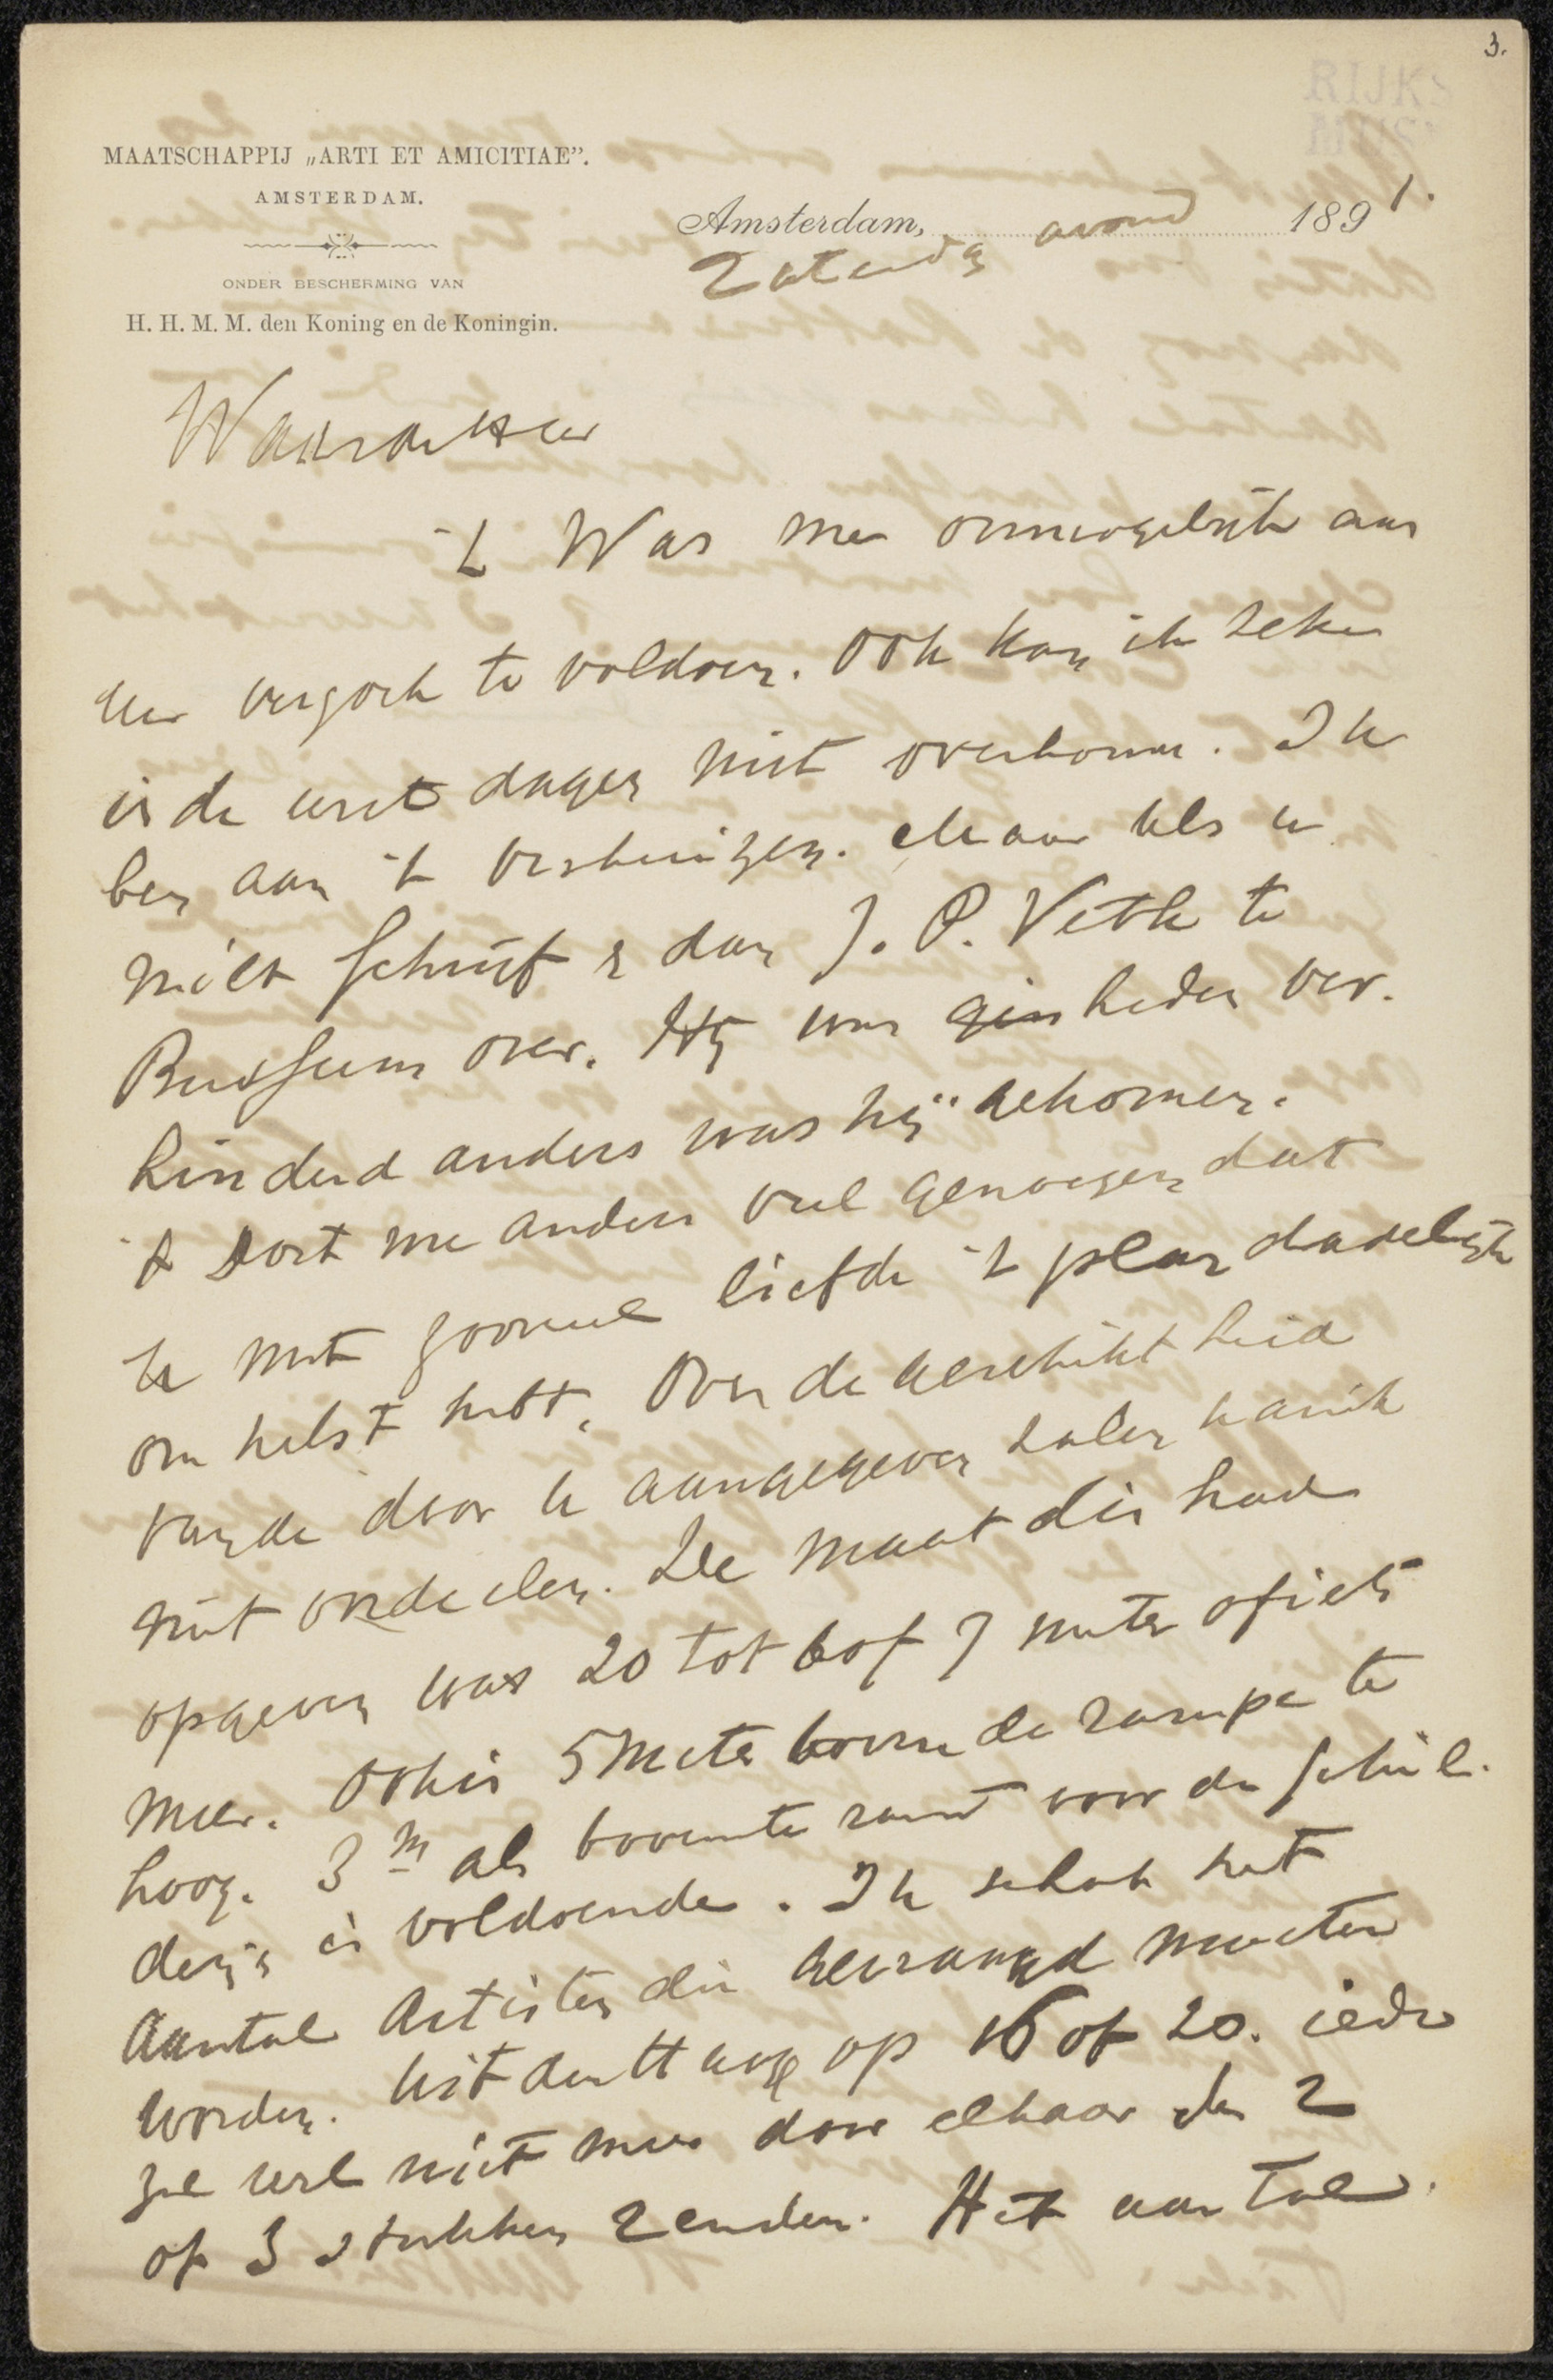 3.
RIJKS
MUS
MAATSCHAPPIJ „ARTI ET AMICITIAE”.
AMSTERDAM.
Amsterdam, avond 1891.
Zaterdag
ONDER BESCHERMING VAN
H. H. M. M. den Koning en de Koningin.
Waarde Heer
't Was me onmogelijk aan
uw verzoek te voldoen. Ook kan ik zeker
in de eerste dagen niet overkomen. Ik
ben aan 't verhuizen. Maar als u
wilt schrijf er dan J. P. Veth te
Bussum over. Hij was heden ver.
hinderd anders was hij gekomen.
't Doet me anders veel genoegen dat
U met zooveel liefde 't plan dadelijk
omhelst hebt. Over de geschiktheid
van de door U aangegeven zalen kan ik
niet oordeelen. De maat die had
opgeven was 20 tot 6 of 7 meter of iets
meer. Ook is 5 Meter boven de rampe te
hoog. 3 M als bovenste rand voor de schil.
derijen is voldoende. Ik schat het
aantal Artisten die gevraagd moeten
worden. Uit den Haag op 16 of 20. ieder
zal wel niet meer door elkaar dan 2
of 3 stukken zenden. Het aantal